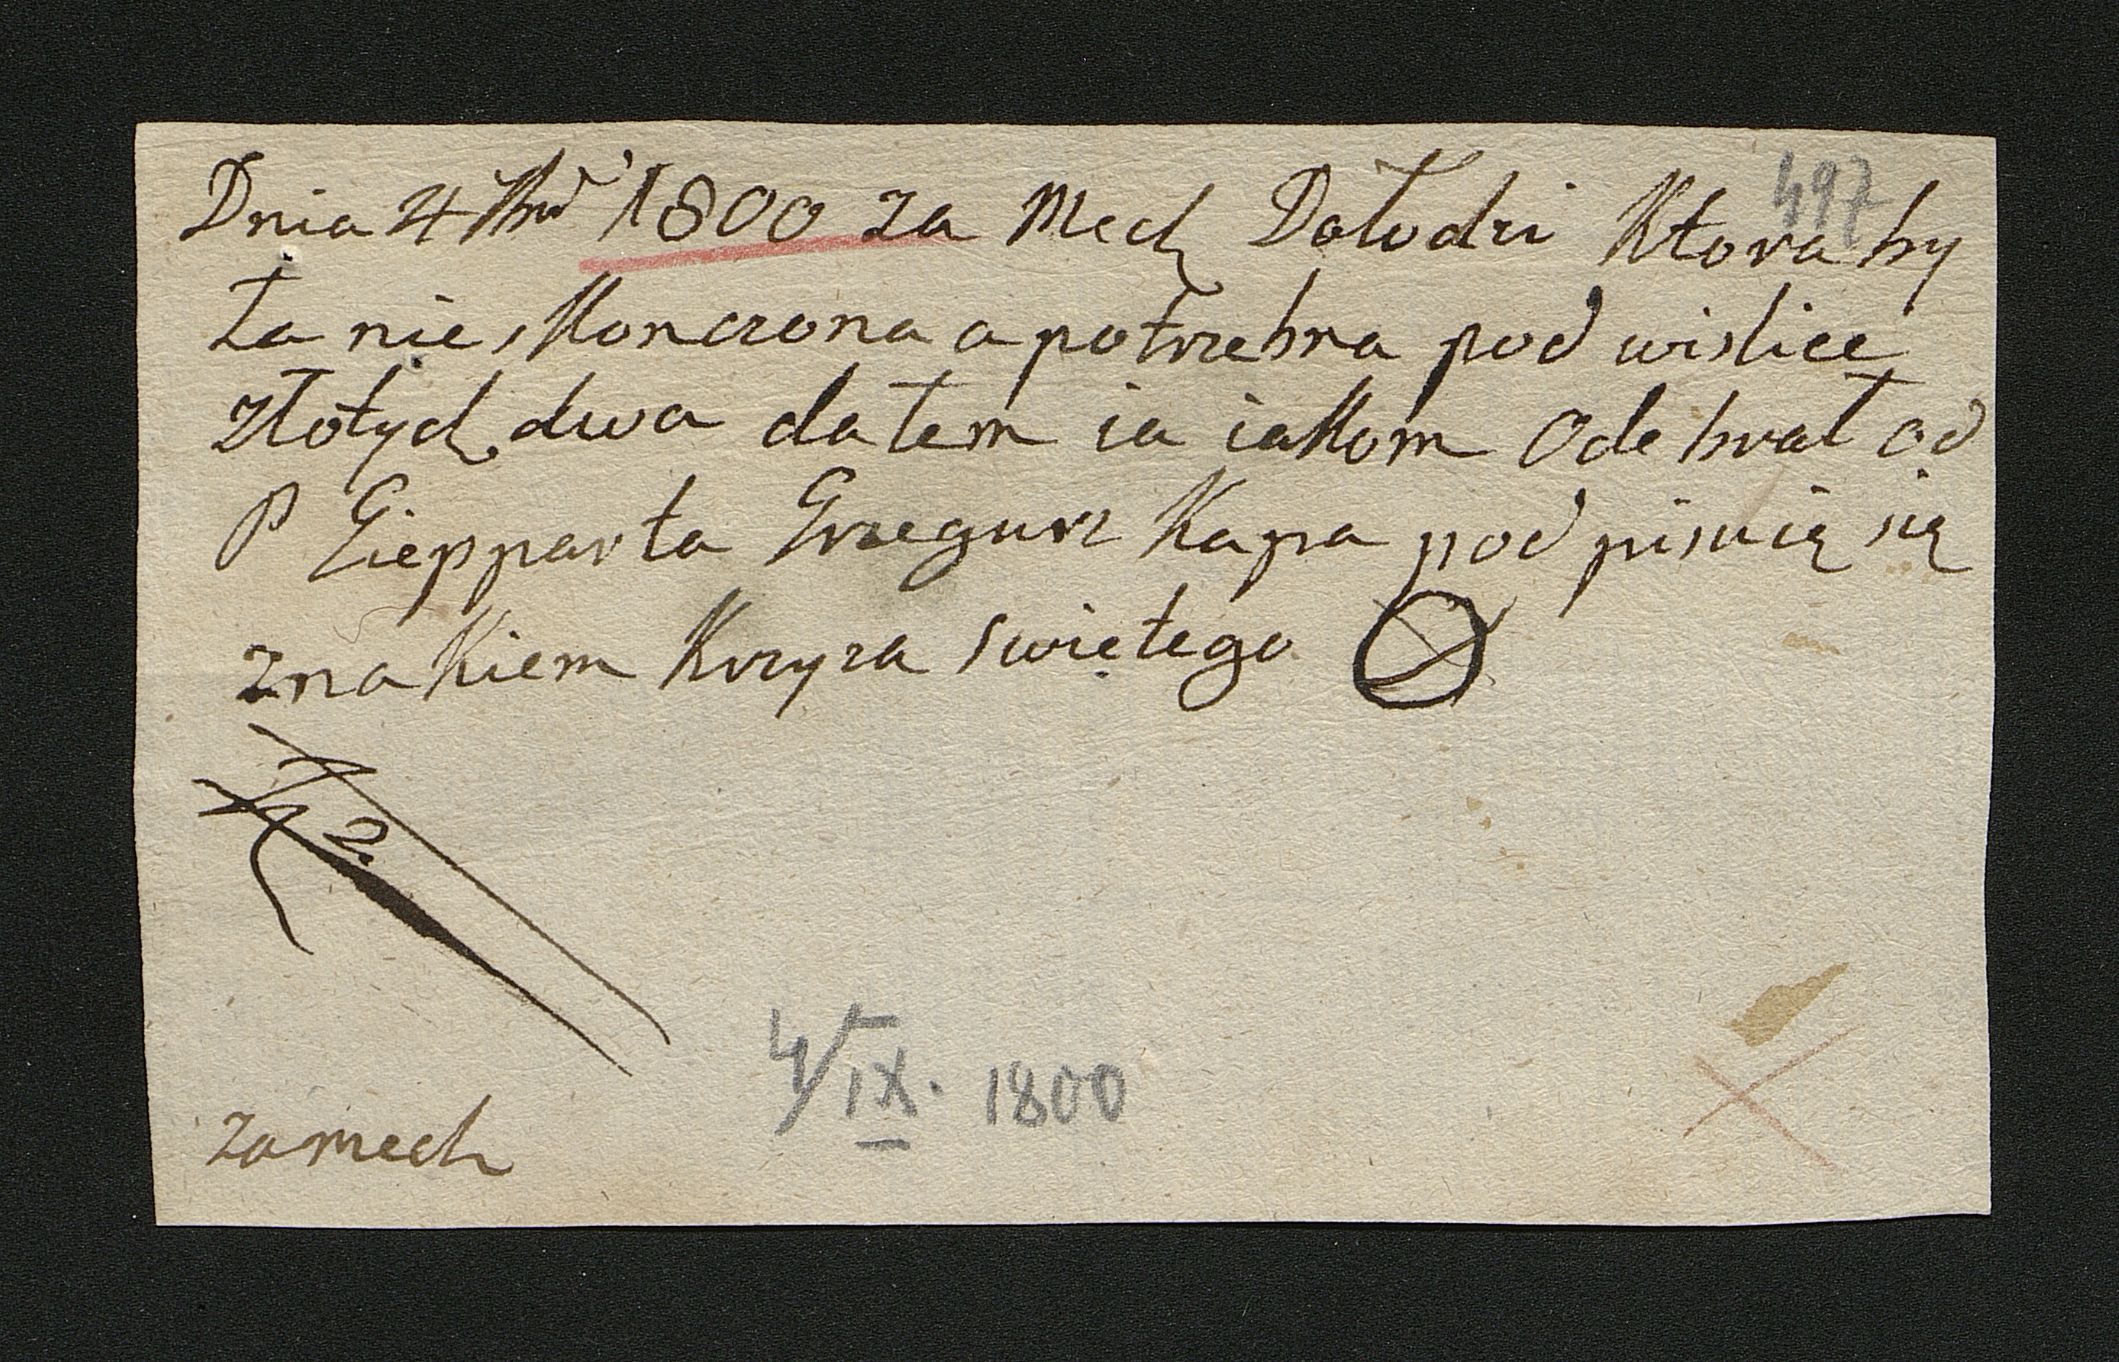 Dnia 4 7bris 1800 za Mech Dołodzi Ktora by
ła nie skonczona a potrzebna pod wislice
złotych dwa dałem ia iakom Ode brał od
P Giepparta Grzegurz Kapa pod pisuię się
zna Kiem Krzyza swiętego
2.
za mech
497
4/IX. 1800